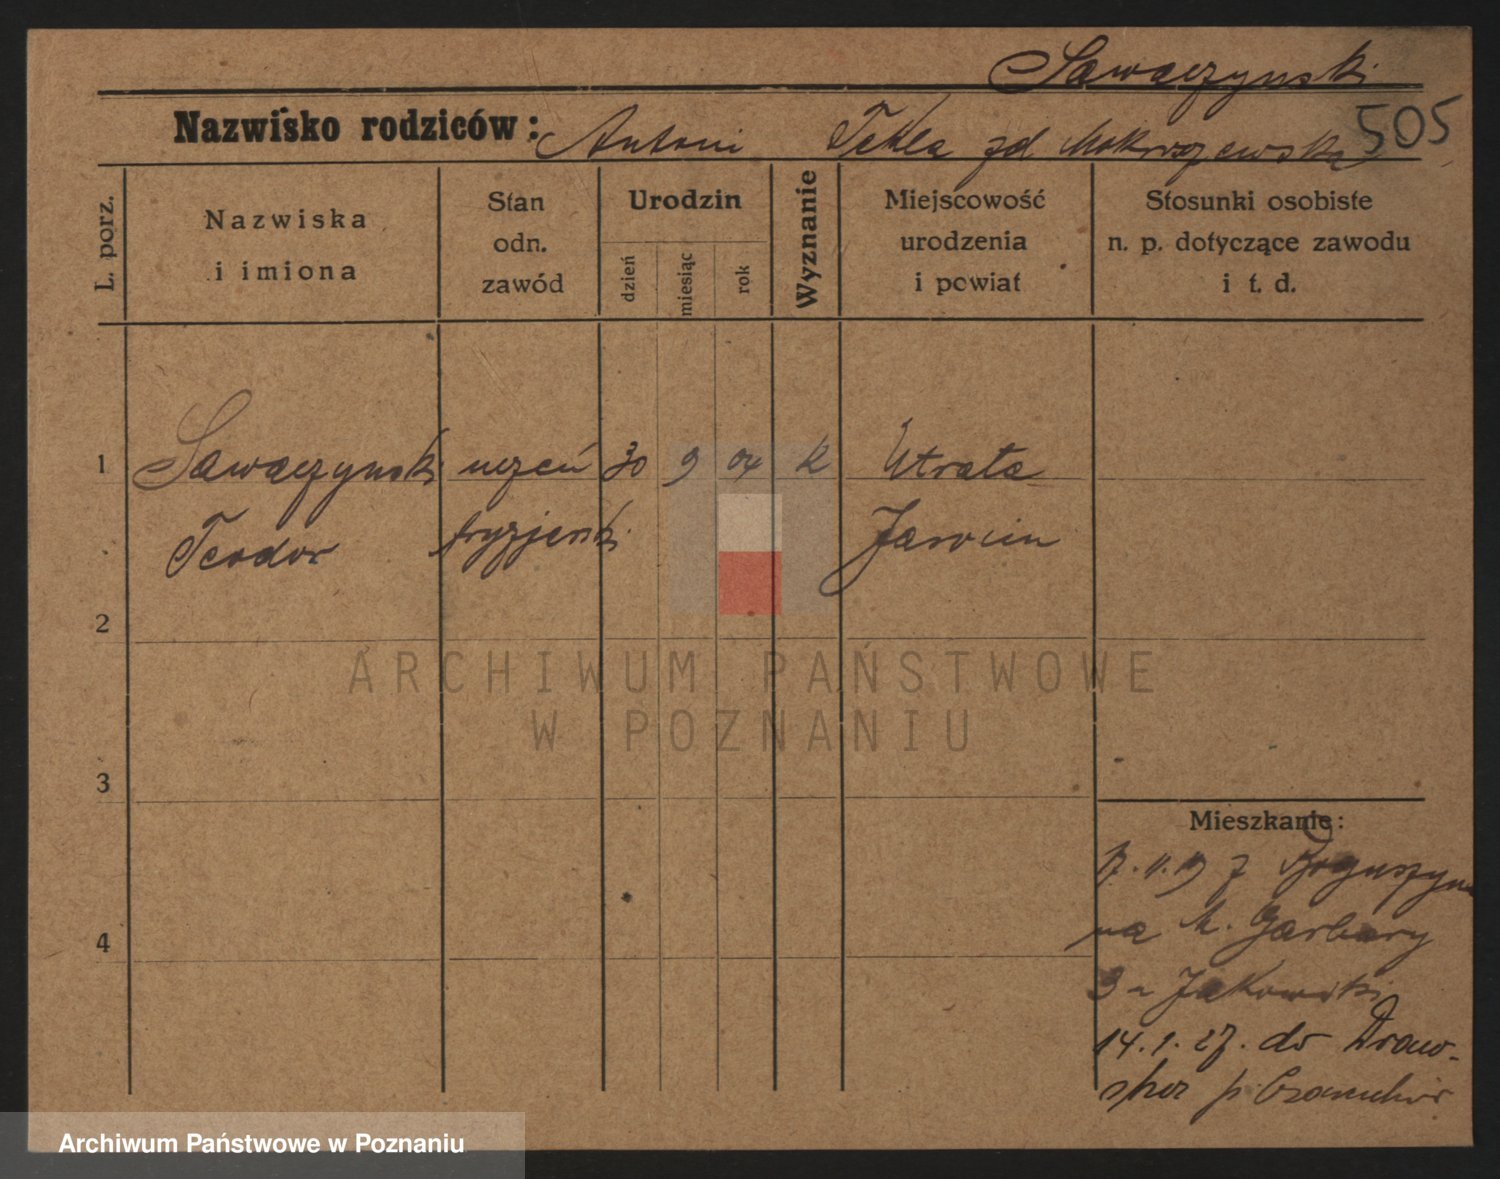 Sawaczynski
505
Nazwisko rodziców: Antoni Tekla zd Mokrszewska
L. porz.
Nazwiska
i imiona
Stan
odn.
zawód
Urodzin
dzień
miesiąc
rok
Wyznanie
Miejscowość
urodzenia
i powiat
Stosunki osobiste
n. p. dotyczące zawodu
i t. d.
1 Sawaczynski uczeń 30 9 04 k Utrata
Teodor fryzjerski Jarocin
2
3
4
Mieszkanie:
z Boguszyna
na M. Garbary
3 Jakowski
14.1.27. do Draw-
sko p. Czarnków
ARCHIWUM PAŃSTWOWE
W POZNANIU
Archiwum Państwowe w Poznaniu